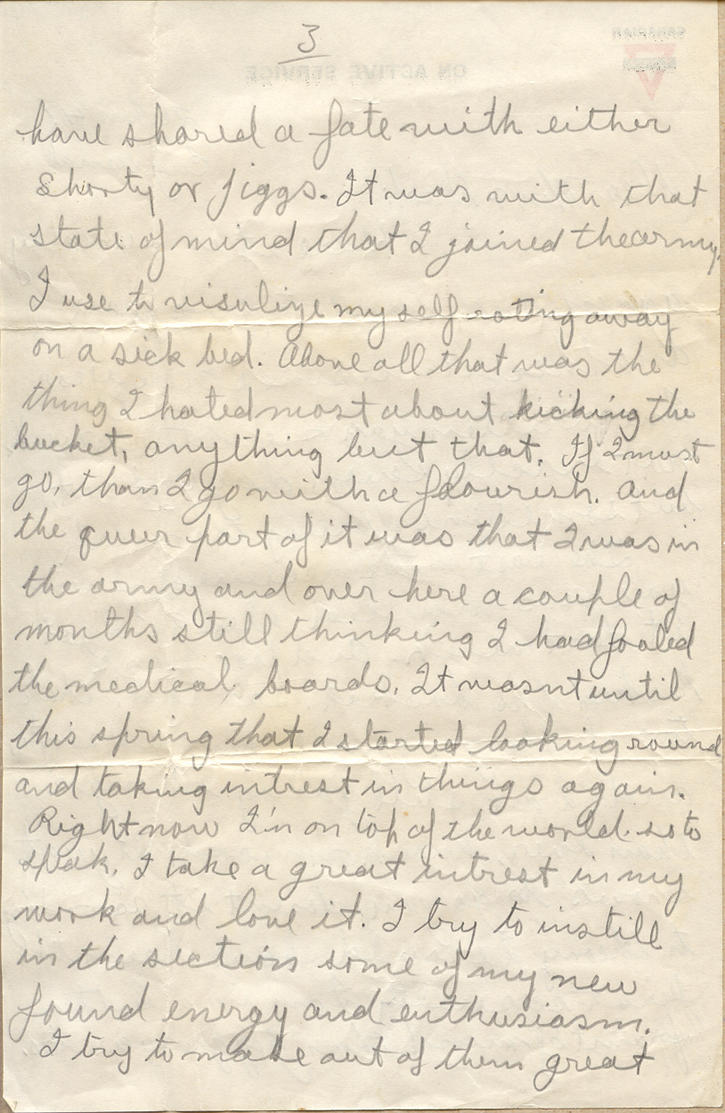 3
ON ACTIVE SERVICE
CANADIAN
have shared a fate with either
Shorty or Jiggs. It was with that
state of mind that I joined the army.
I use to visulize my self roting away
on a sick bed. Above all that was the
thing I hated most about kicking the
bucket, anything but that. If I must
go, than I go with a flourish. And
the queer part of it was that I was in
the army and over here a couple of
months still thinking I had fooled
the medical boards. It wasnt until
this spring that I started looking round
and taking intrest in things again.
Right now I'm on top of the world so to
speak. I take a great intrest in my
work and love it. I try to instill
in the section some of my new
found energy and enthusiasm.
I try to make out of them great